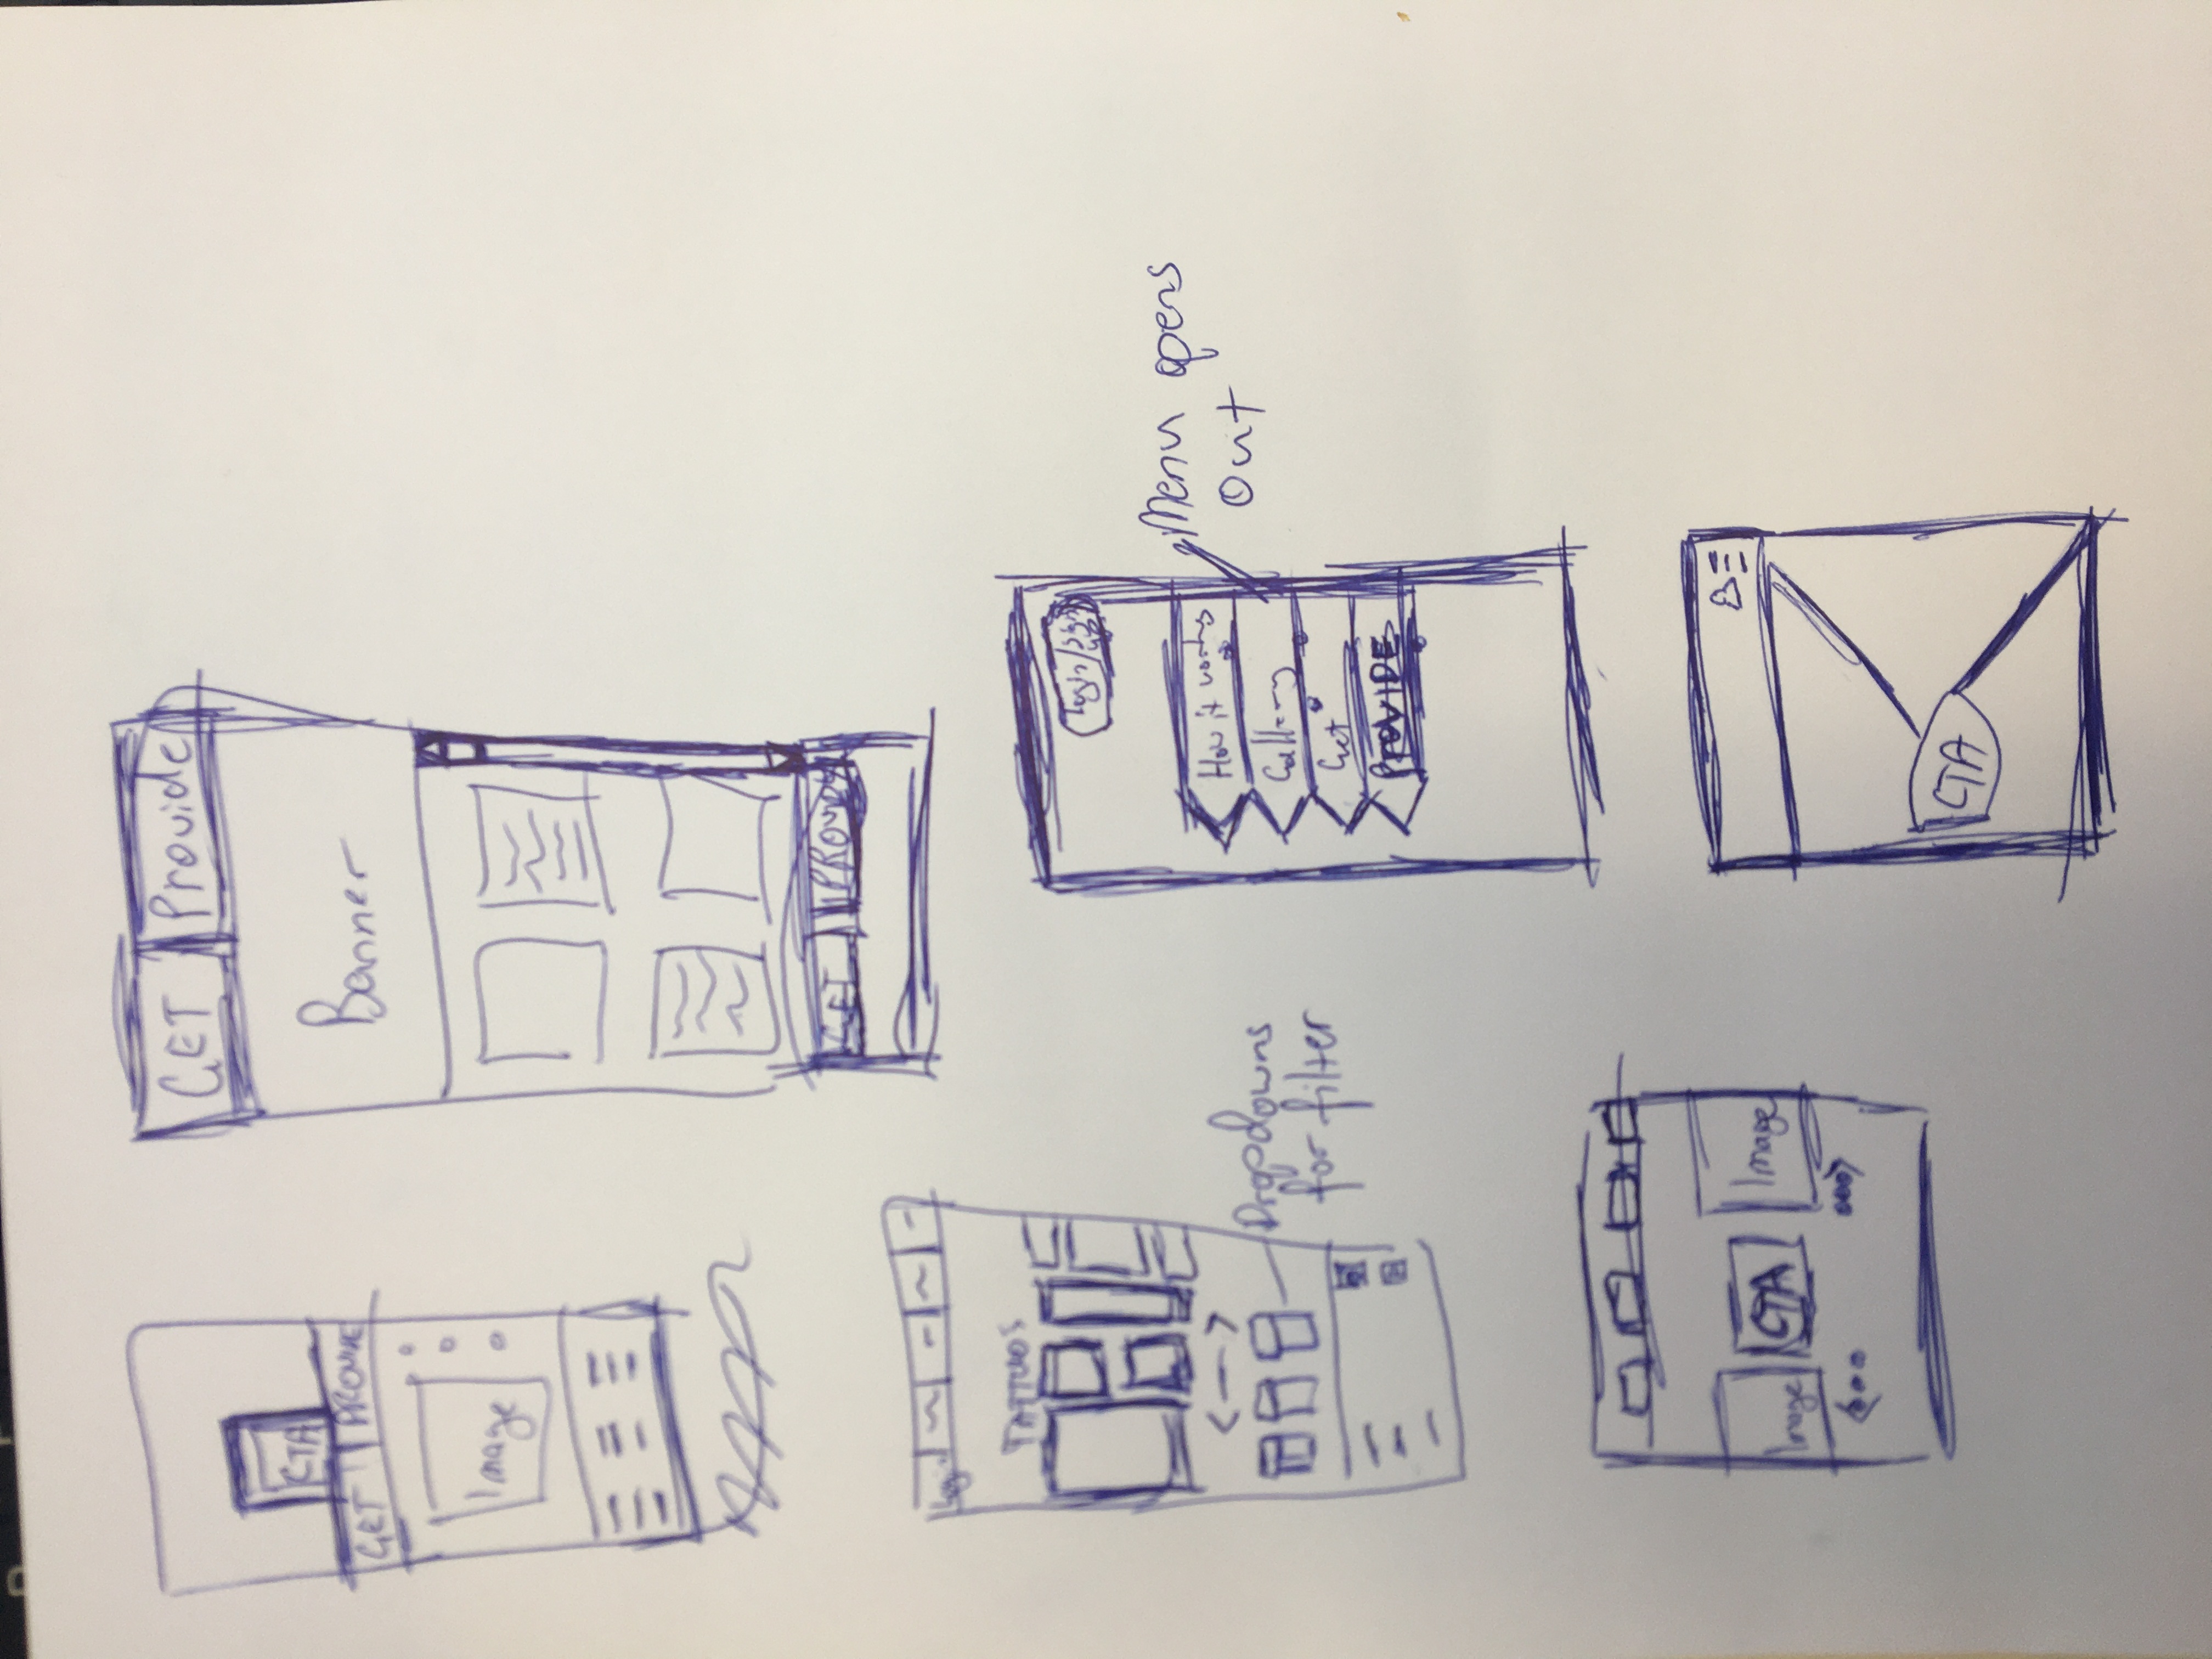 CTA
GET
PROVIDE
Image
GET
Provide
Banner
GET
PROVIDE
Login
TATTUOS
Dropdowns
for filter
Login/Sign
up
How it works
Gallery
Get
PROVIDE
Menu opens
Out
Image
CTA
Image
CTA